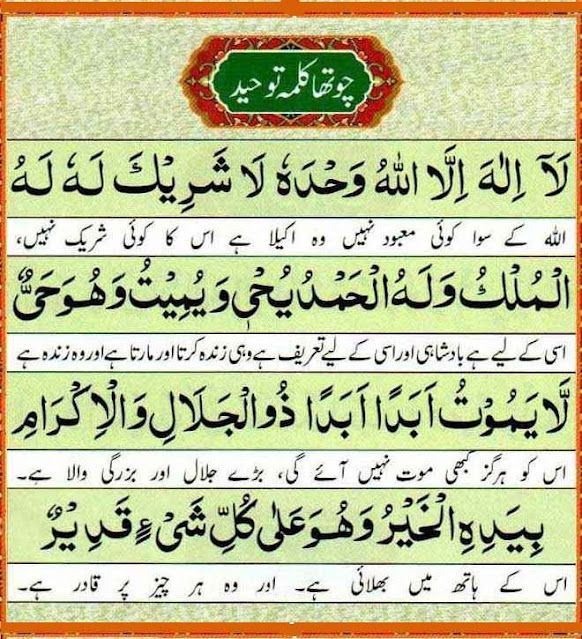 چوتھا کلمہ توحید
لَآ اِلٰهَ اِلَّا اللّٰهُ وَحْدَهٗ لَا شَرِيْكَ لَهٗ لَهُ
اللہ کے سوا کوئی معبود نہیں وہ اکیلا ہے اس کا کوئی شریک نہیں،
الْمُلْكُ وَلَهُ الْحَمْدُ يُحْيٖ وَيُمِيْتُ وَهُوَ حَيٌّ
اسی کے لیے ہے بادشاہی اور اسی کے لیے تعریف ہے وہی زندہ کرتا اور مارتا ہے اور وہ زندہ ہے
لَّا يَمُوْتُ اَبَدًا اَبَدًا ذُوالْجَلَالِ وَالْاِكْرَامِ
اس کو ہرگز کبھی موت نہیں آئے گی، بڑے جلال اور بزرگی والا ہے۔
بِيَدِهِ الْخَيْرُ وَهُوَ عَلٰى كُلِّ شَىْءٍ قَدِيْرٌ
اس کے ہاتھ میں بھلائی ہے۔ اور وہ ہر چیز پر قادر ہے۔